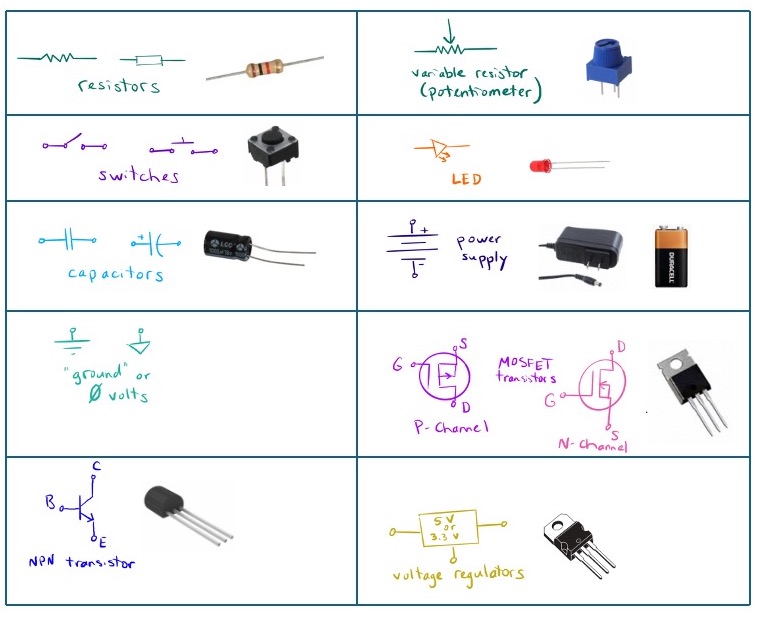 resistors
variable resistor
(potentiometer)
switches
LED
LGC
capacitors
P
+
-
power
supply
DURACELL
"ground" or
Ø volts
G
S
D
P-Channel
MOSFET
transistors
D
G
S
N-Channel
C
B
E
NPN transistor
5V
or
3.3 V
voltage regulators